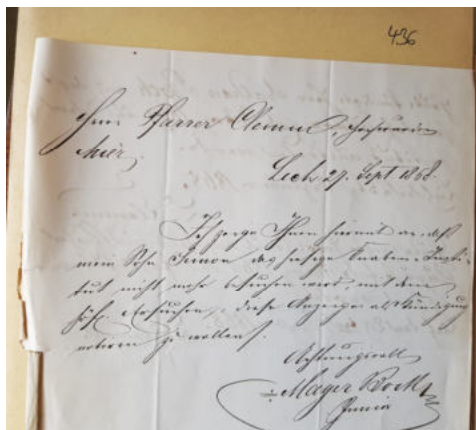 436
Herrn Pfarrer Clemm, Hochwürden
hier,
Lich 29. Sept 1868.
Ich zeige Ihnen hiermit an, daß
mein Sohn Simon das hiesige Knaben-Insti-
tut nicht mehr besuchen wird, mit dem
höfl. Ersuchen, diese Anzeige als Kündigung
notieren zu wollen.
Achtungsvoll
Mayer Bock
Junior